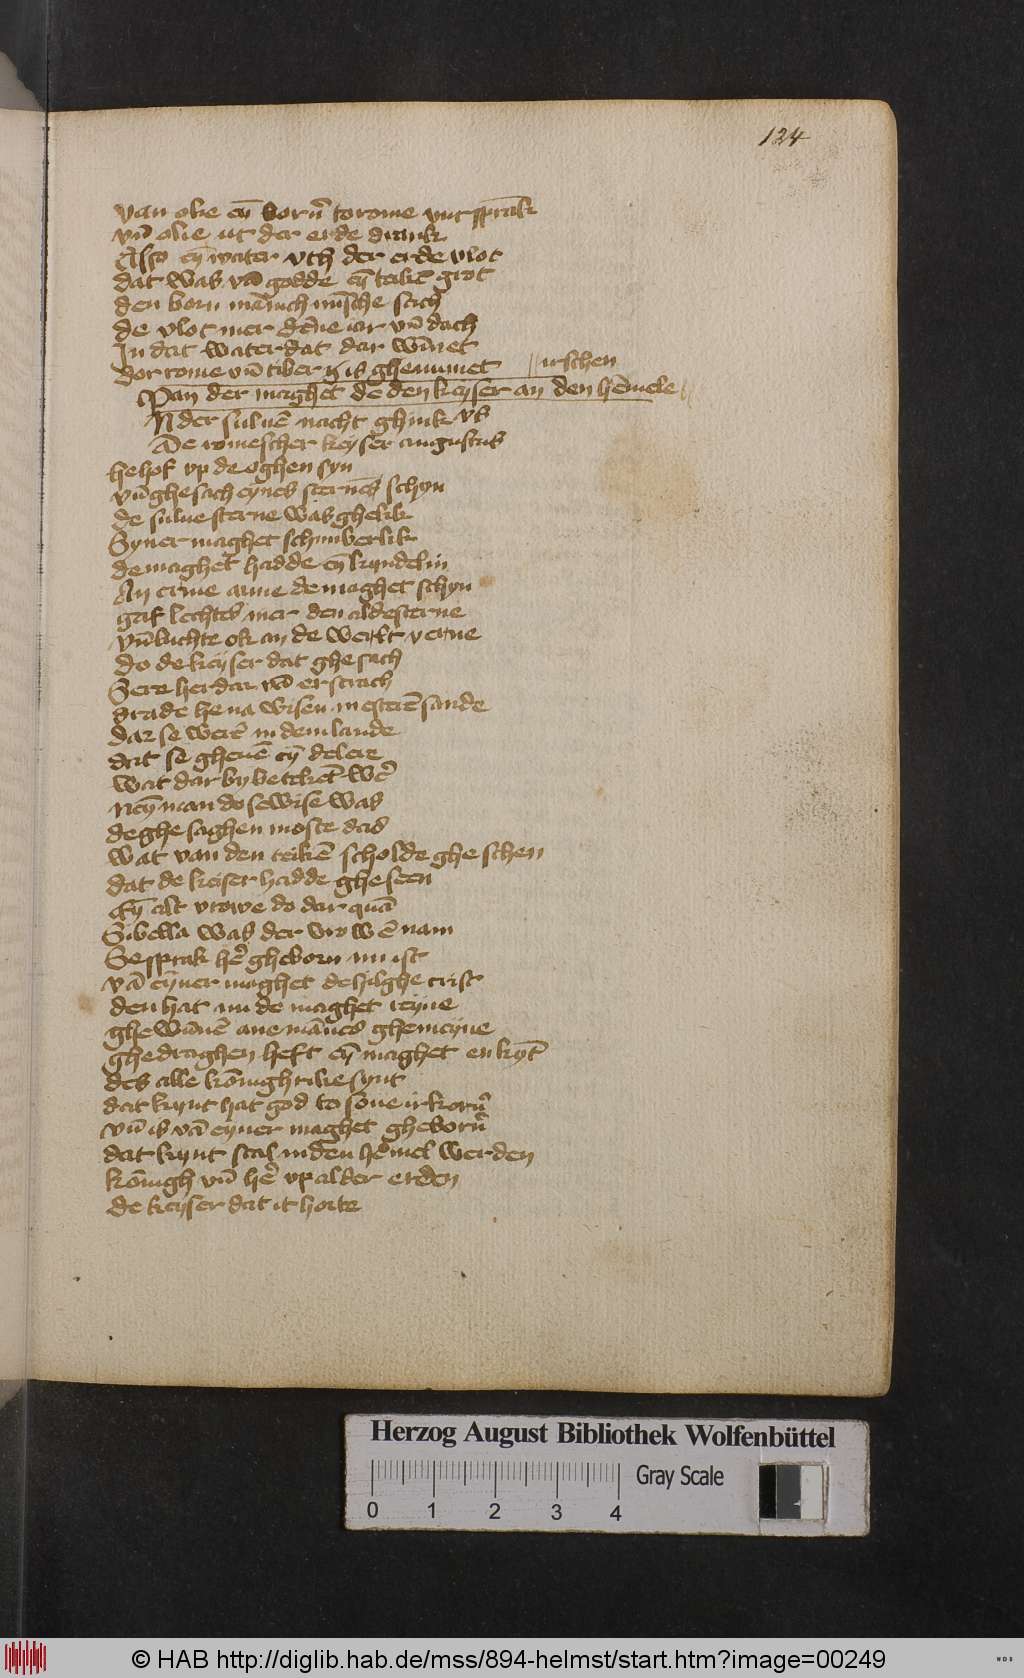 124
van olie eȳ born̄ to rome vut sprak
vn̄ olie ut der erde drank
Also eȳ water vth der erde vlot
dat was vā godde eȳ teikē grot
den born mēnich mīsche sach
de vlot mer dēne iar vn̄ dach
In dat water dat dar wīnet
vor rome vn̄ tiber is ghenumet
Van der maghet de den keyser an den hēmele // irschen
N der suluē nacht ghink vs
De romescher keyser augustus
helpf vp de oghen syn
vn̄ ghesach eynes sternēs schyn
de sulue sterne was ghelik
Syner maghet schinberlik
de maghet hadde eȳ kyndelin
An erme arme de maghet schyn
gaf lechtes mer den alde sterne
vn̄ luchte ok an de werlt verne
do de keyser dat ghesach
Sere he dar vā erscrach
drade he na wisen mesterē sande
dar se werē in dem lande
dat se gheuē eȳ del ere
wat dar by betekēt wer̄
neȳ man do se wise was
de ghesaghen moste das
wat van den teikē scholde gheschen
dat de keiser hadde gheseen
Eȳ alt vrowe do dar quā
Sibella was der vrowē nam
Se sprak her̄ gheborn nu ist
vā eȳner maghet de hilghe crist
den hat nu de maghet reyne
ghewūnē ane mānes ghemeyne
ghedraghen heft eȳ maghet en kȳt
des alle kōnighrike synt
dat kynt hat god to sone irkorn̄
vn̄ is vā eyner maghet gheborn̄
dat kynt scal in den hēmel werden
kōnigh vn̄ her̄ vp alder erden
de keyser dat it horte
Herzog August Bibliothek Wolfenbüttel
0 1 2 3 4 Gray Scale
© HAB http://diglib.hab.de/mss/894-helmst/start.htm?image=00249